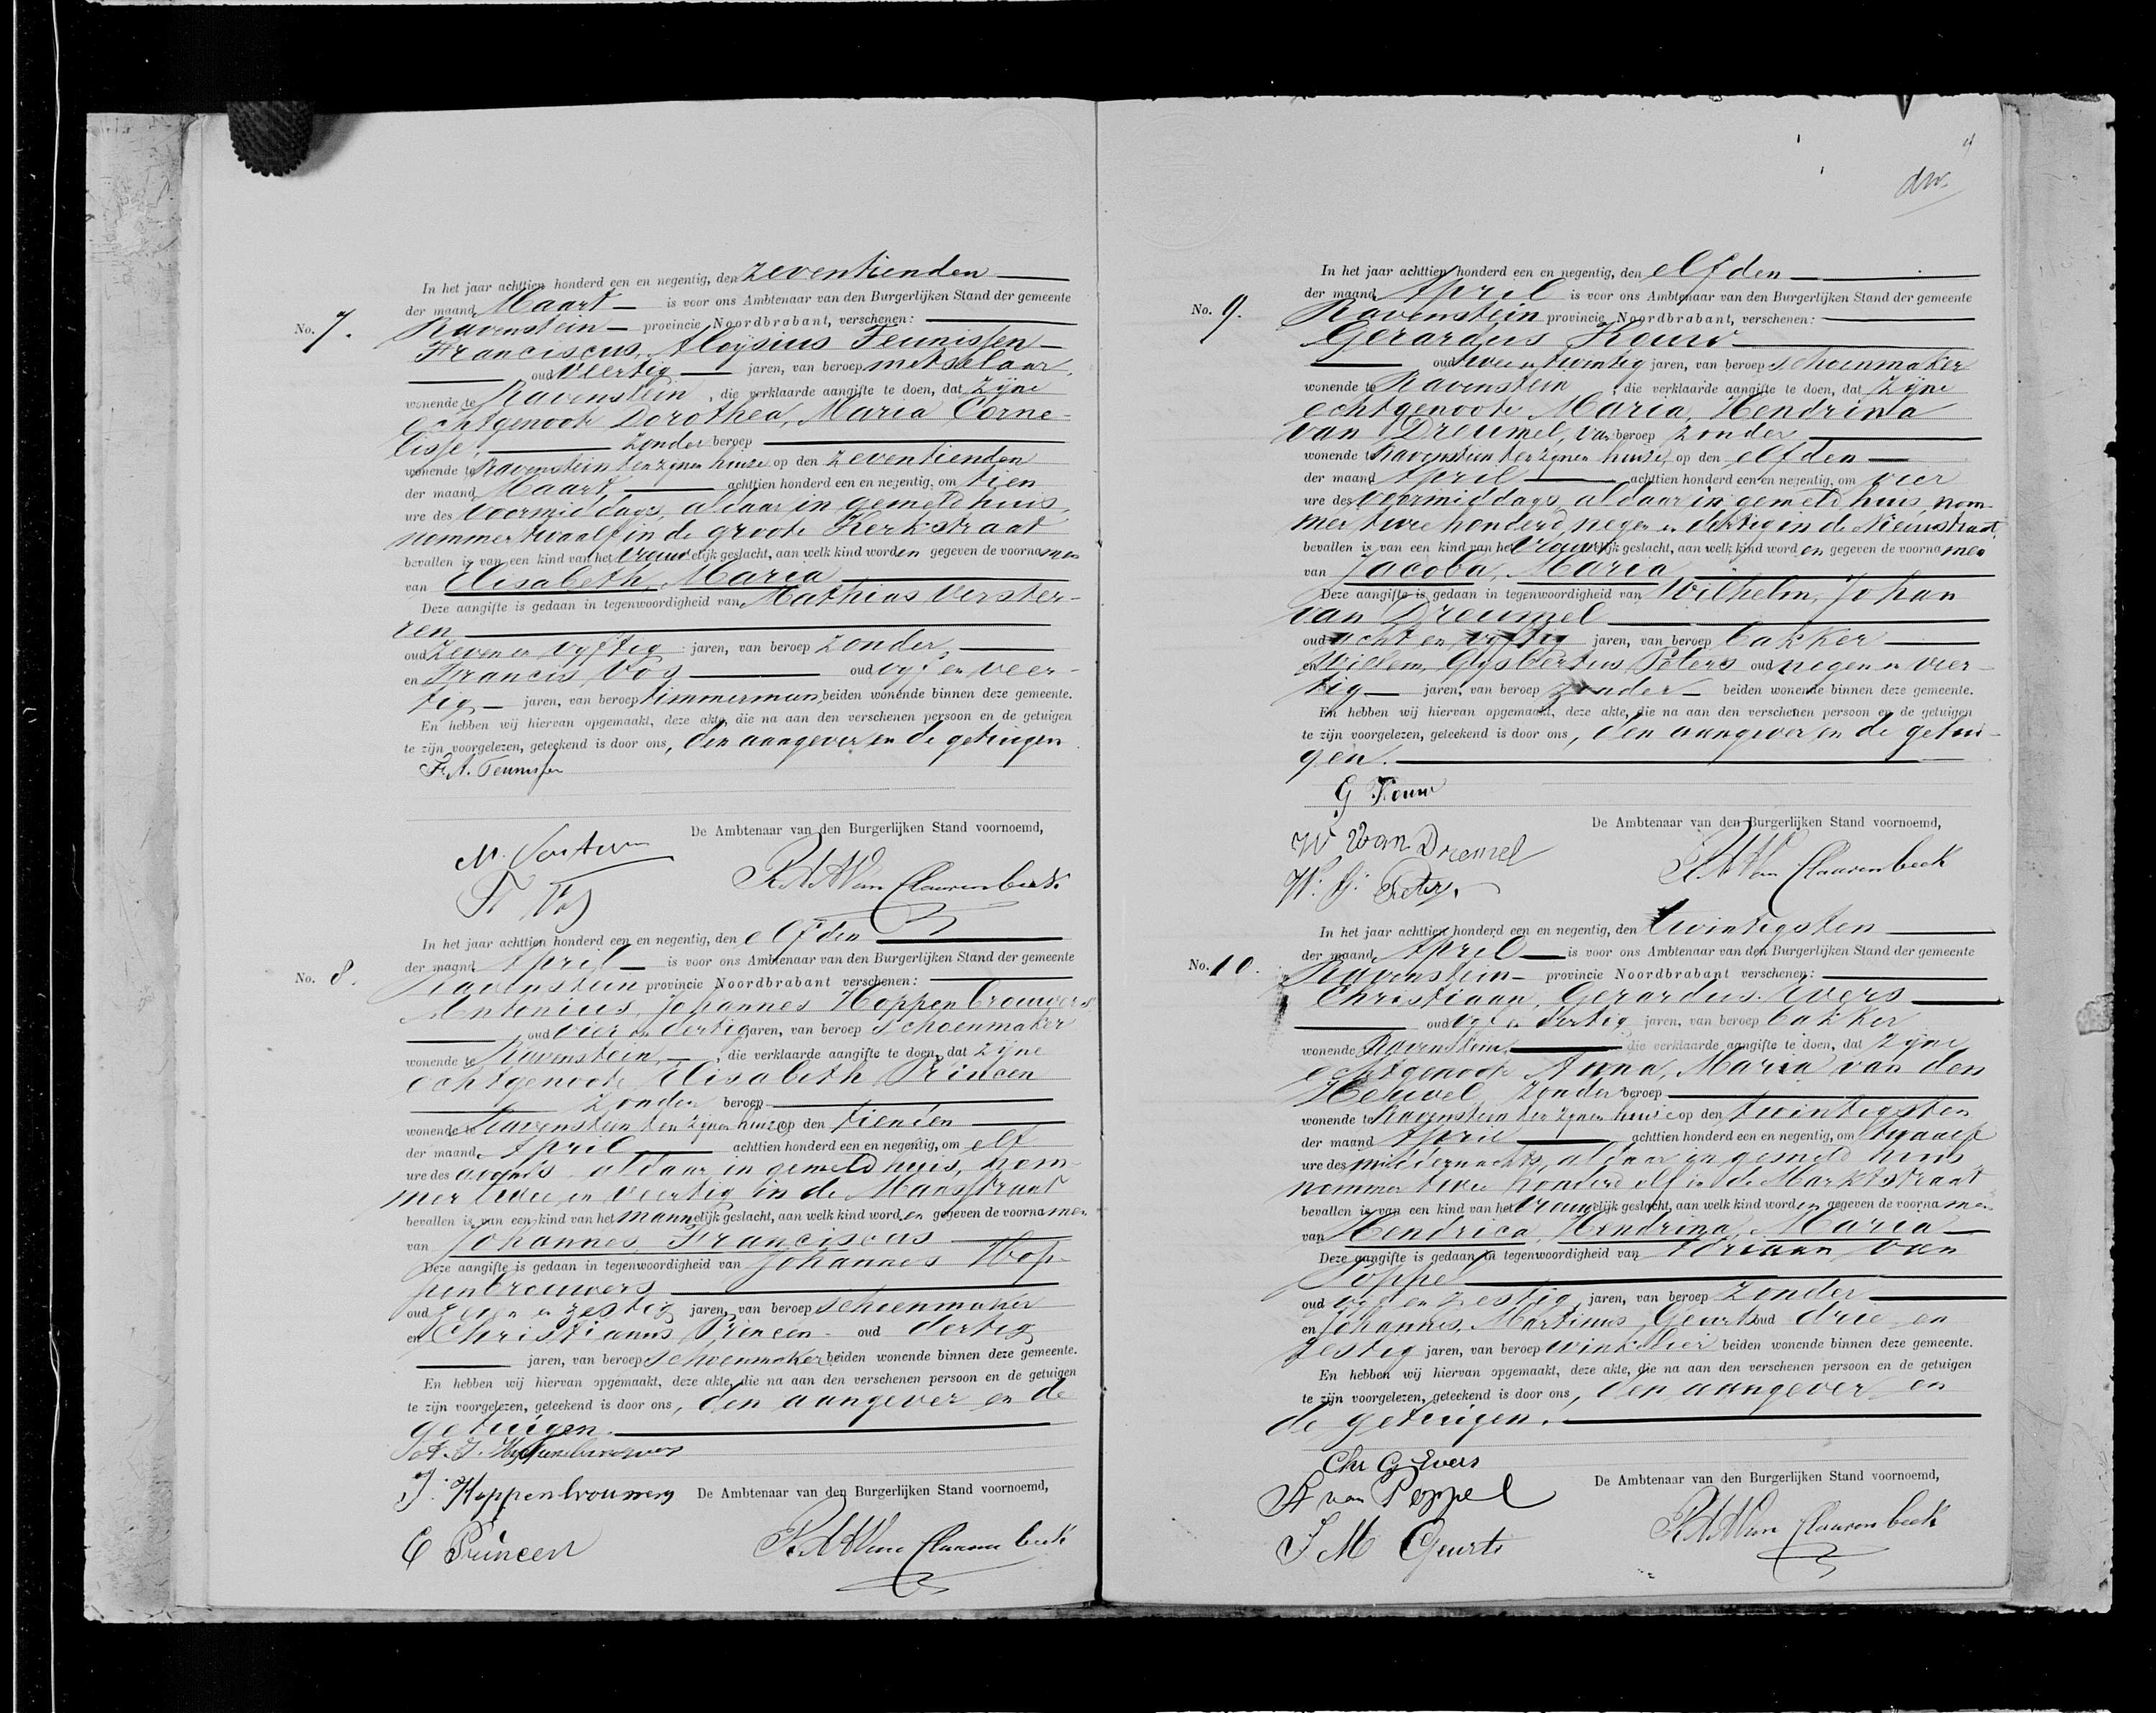 No. 7.
In het jaar achttien honderd een en negentig, den zeventienden
der maand Maart is voor ons Ambtenaar van den Burgerlijken Stand der gemeente
Ravenstein provincie Noordbrabant, verschenen:
Franciscus, Aloÿsius Teunissen
oud veertig jaren, van beroep metselaar,
wonende te Ravenstein, die verklaarde aangifte te doen, dat zijne
echtgenoote Dorothea, Maria Corne-
lisse, zonder beroep
wonende te Ravenstein ten zijnen huize op den zeventienden
der maand Maart achttien honderd een en negentig, om tien
ure des voormiddags, aldaar in gemeld huis,
nommer twaalf in de groote Kerkstraat
bevallen is van een kind van het vrouwelijk geslacht, aan welk kind worden gegeven de voornamen
van Elisabeth, Maria
Deze aangifte is gedaan in tegenwoordigheid van Mathias Verster-
ren
oud zeven en vijftig jaren, van beroep zonder,
en Francis Vos oud vijf en veer-
tig jaren, van beroep timmerman, beiden wonende binnen deze gemeente.
En hebben wij hiervan opgemaakt, deze akte, die na aan den verschenen persoon en de getuigen
te zijn voorgelezen, geteekend is door ons, den aangever en de getuigen
Fr. A. Teunissen
De Ambtenaar van den Burgerlijken Stand voornoemd,
F Vos
No. 8.
In het jaar achttien honderd een en negentig, den elfden
der maand April is voor ons Ambtenaar van den Burgerlijken Stand der gemeente
Ravenstein provincie Noordbrabant verschenen:
Antonius, Johannes Hoppenbrouwers
oud vier en dertig jaren, van beroep schoenmaker
wonende te Ravenstein, die verklaarde aangifte te doen, dat zijne
echtgenoote Elisabeth Princen
zonder beroep
wonende te Ravenstein ten zijnen huize op den tienden
der maand April achttien honderd een en negentig, om elf
ure des avonds aldaar in gemeld huis, nom-
mer twee en veertig in de Maasstraat
bevallen is van een kind van het mannelijk geslacht, aan welk kind worden gegeven de voornamen
van Johannes Franciscus
Deze aangifte is gedaan in tegenwoordigheid van Johannes Hop-
penbrouwers
oud zeven en zestig jaren, van beroep schoenmaker
en Christianus Princen oud dertig
jaren, van beroep schoenmaker beiden wonende binnen deze gemeente.
En hebben wij hiervan opgemaakt, deze akte, die na aan den verschenen persoon en de getuigen
te zijn voorgelezen, geteekend is door ons, den aangever en de
getuigen.
A. J. Hoppenbrouwers
J. Hoppenbrouwers De Ambtenaar van den Burgerlijken Stand voornoemd,
C Princen
No. 9.
In het jaar achttien honderd een en negentig, den elfden
der maand April is voor ons Ambtenaar van den Burgerlijken Stand der gemeente
Ravenstein provincie Noordbrabant, verschenen:
Gerardus Kouw
oud twee en twintig jaren, van beroep schoenmaker
wonende te Ravenstein, die verklaarde aangifte te doen, dat zijne
echtgenoote Maria, Hendrina
van Dreumel, van beroep zonder
wonende te Ravenstein ten zijnen huize, op den elfden
der maand April achttien honderd een en negentig, om vier
ure des voormiddags aldaar in gemeld huis, nom-
mer twee honderd negen en dertig in de Nieuwstraat,
bevallen is van een kind van het vrouwelijk geslacht, aan welk kind worden gegeven de voornamen
van Jacoba, Maria
Deze aangifte is gedaan in tegenwoordigheid van Wilhelm, Johan
van Dreumel
oud acht en vijftig jaren, van beroep bakker
en Willem, Gijsbertus Peters oud negen en veer-
tig jaren, van beroep zonder beiden wonende binnen deze gemeente.
En hebben wij hiervan opgemaakt, deze akte, die na aan den verschenen persoon en de getuigen
te zijn voorgelezen, geteekend is door ons, den aangever en de getui-
gen.
G Kouw
De Ambtenaar van den Burgerlijken Stand voornoemd,
W van Dremel
W. G. Peters.
No. 10.
In het jaar achttien honderd een en negentig, den twintigsten
der maand April is voor ons Ambtenaar van den Burgerlijken Stand der gemeente
Ravenstein provincie Noordbrabant verschenen:
Christiaan, Gerardus Evers
oud vijf en dertig jaren, van beroep bakker
wonende te Ravenstein, die verklaarde aangifte te doen, dat zijne
echtgenoote Anna, Maria van den
Heuvel, zonder beroep
wonende te Ravenstein ten zijnen huize op den twintigsten
der maand April achttien honderd een en negentig, om twaalf
ure des middernachts, aldaar in gemeld huis
nommer twee honderd elf in de Marktstraat
bevallen is van een kind van het vrouwelijk geslacht, aan welk kind worden gegeven de voornamen
van Hendrica, Hendrina, Maria
Deze aangifte is gedaan in tegenwoordigheid van Adriaan van
Poppel
oud vijf en zestig jaren, van beroep zonder
en Johannes, Martinus Geurts oud drie en
zestig jaren, van beroep winkelier beiden wonende binnen deze gemeente.
En hebben wij hiervan opgemaakt, deze akte, die na aan den verschenen persoon en de getuigen
te zijn voorgelezen, geteekend is door ons, den aangever en
de getuigen.
Chr G Evers
De Ambtenaar van den Burgerlijken Stand voornoemd,
A van Poppel
J M Geurts